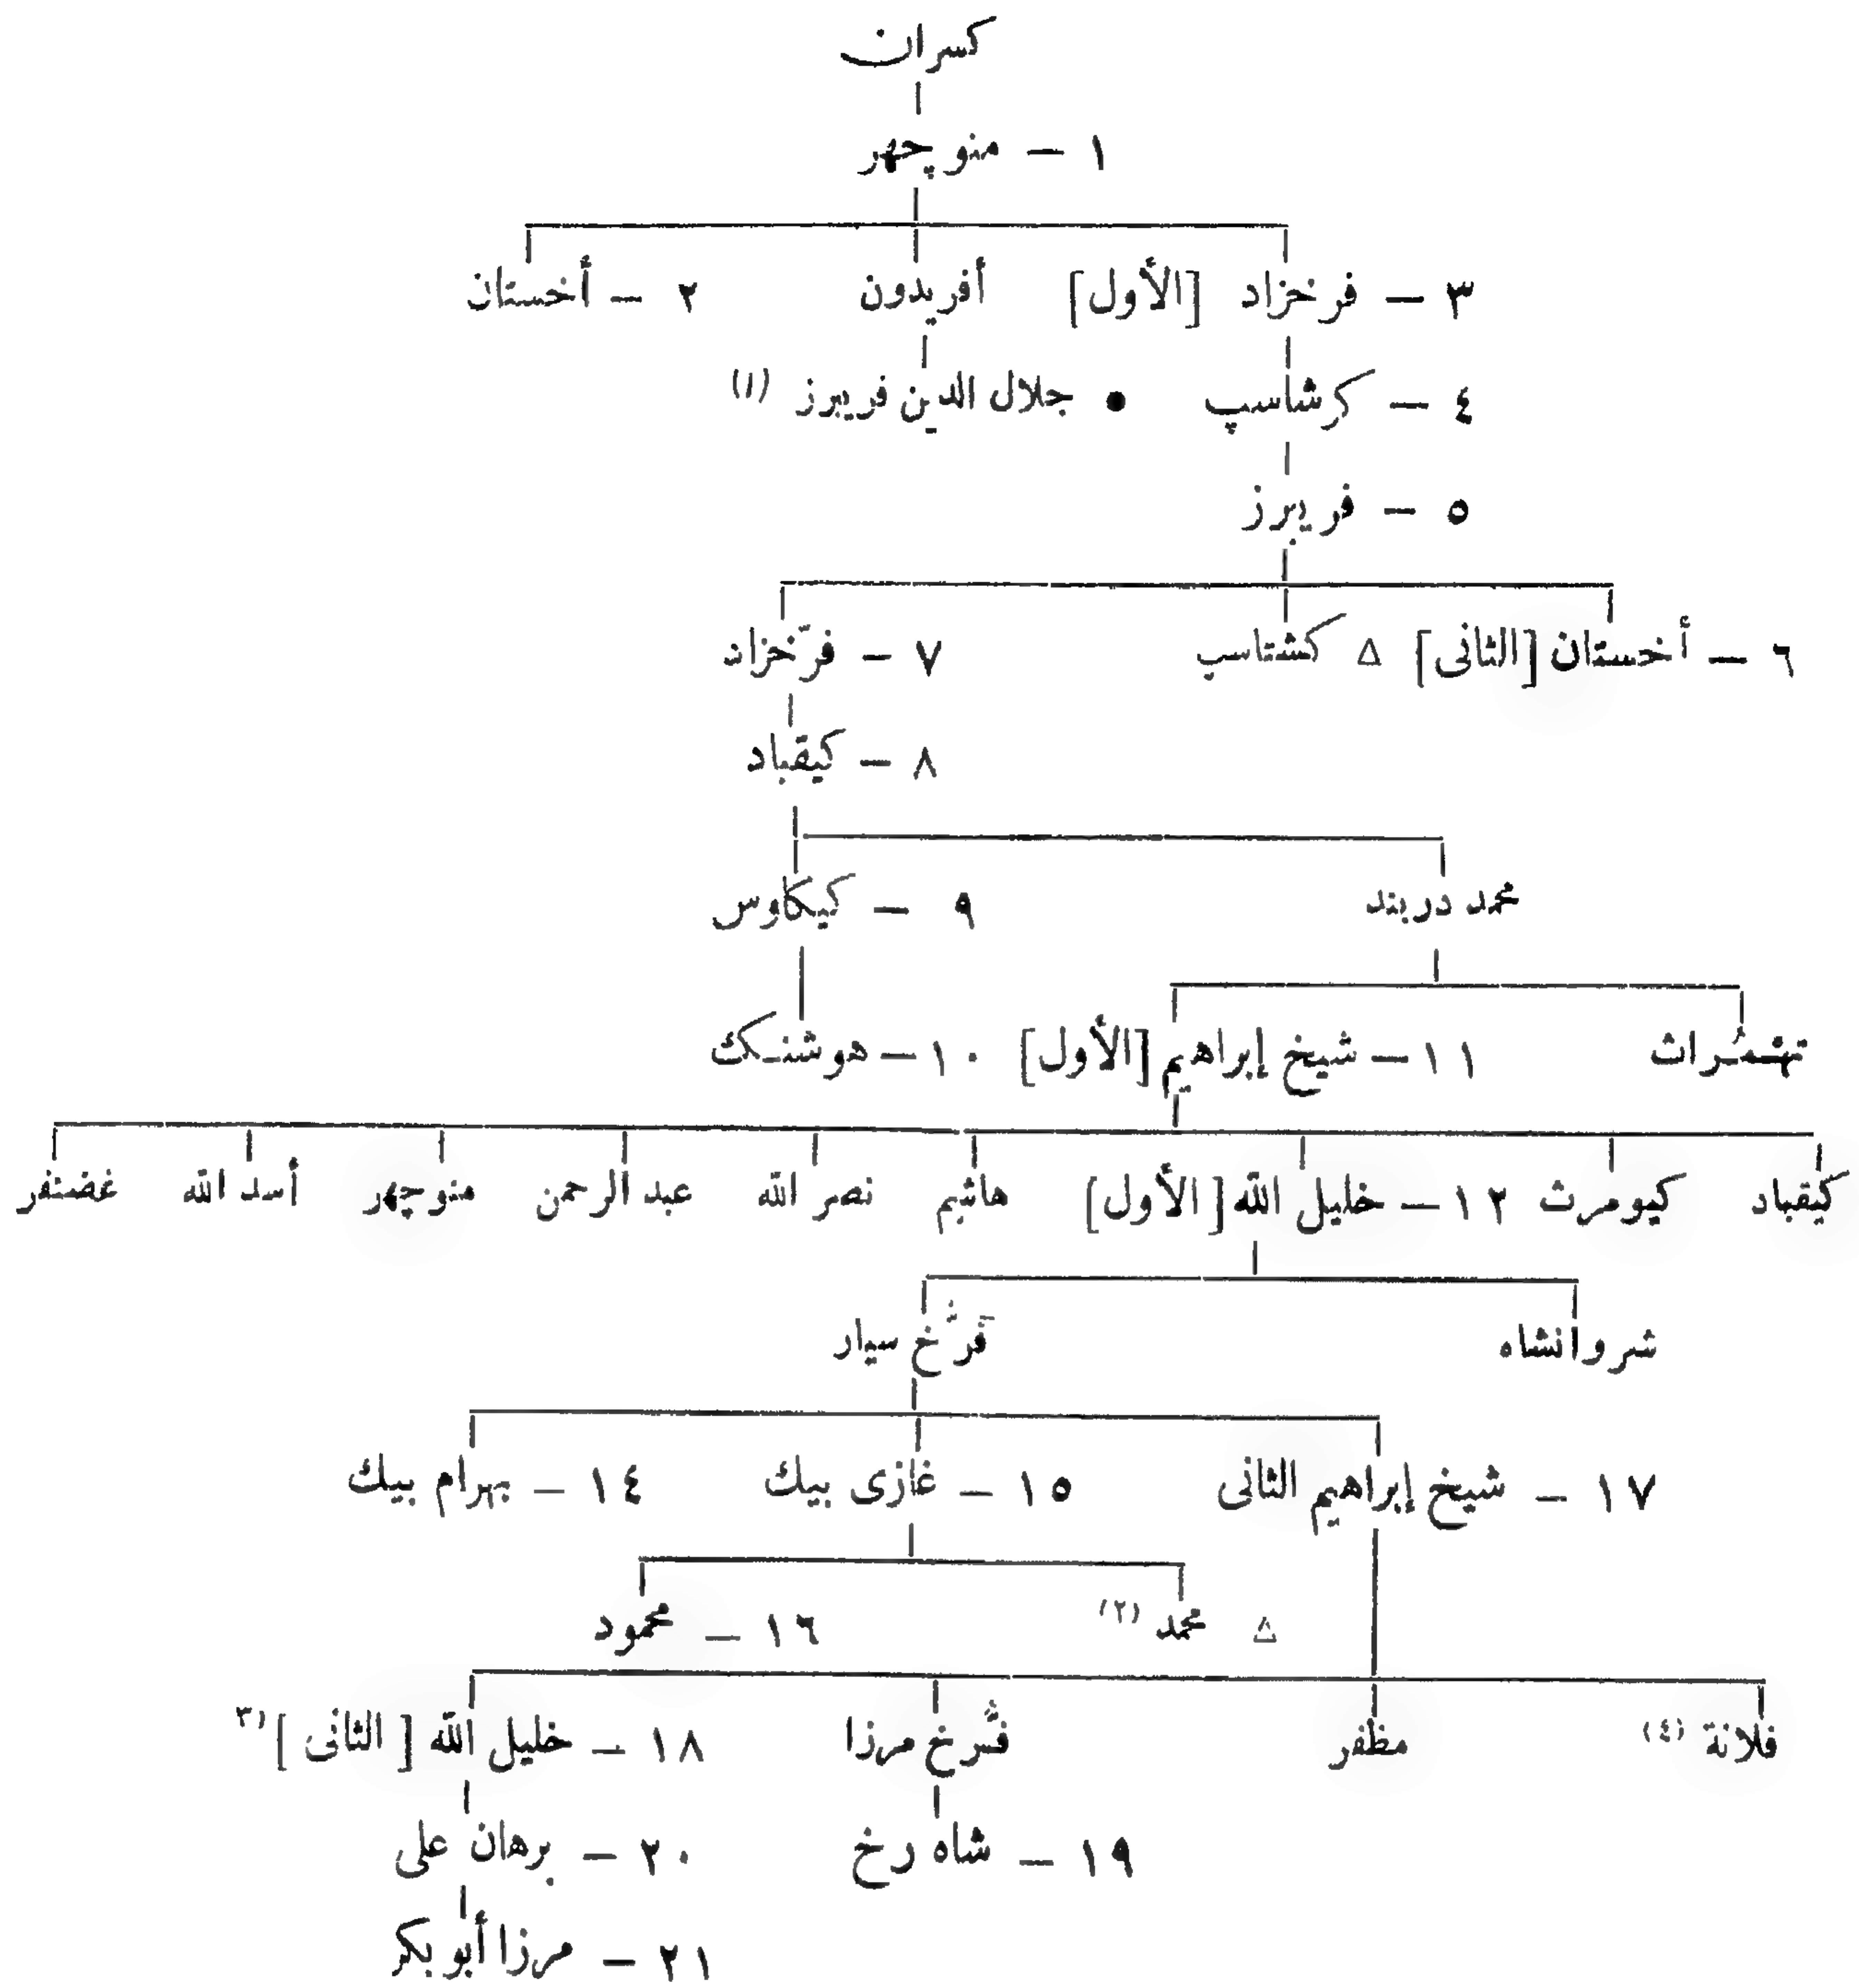 كسران
١ – منوچهر
٣ – فرخزاد [الأول] أفريدون ٢ – أخستان
٤ – كرشاسپ • جلال الدين فريبرز (١)
٥ – فريبرز
٦ – أخستان [الثانى] △ كشتاسب ٧ – فرّخزاد
٨ – كيقباد
محمد دربند ٩ – كيكاوس
تهمُراث ١١ – شيخ إبراهيم [الأول] ١٠ – هوشنك
كيقباد كيومرث ١٢ – خليل الله [الأول] هاشم نصر الله عبد الرحمن منوچهر أسد الله غضنفر
شروانشاه فَرُّخ سيار
١٧ – شيخ إبراهيم الثانى ١٥ – غازى بيك ١٤ – بهرام بيك
△ محمد (٢) ١٦ – محمود
فلانة (٤) مظفر فرُّخ مرزا ١٨ – خليل الله [الثانى] (٣
١٩ – شاه رخ ٢٠ – برهان على
٢١ – مرزا أبو بكر